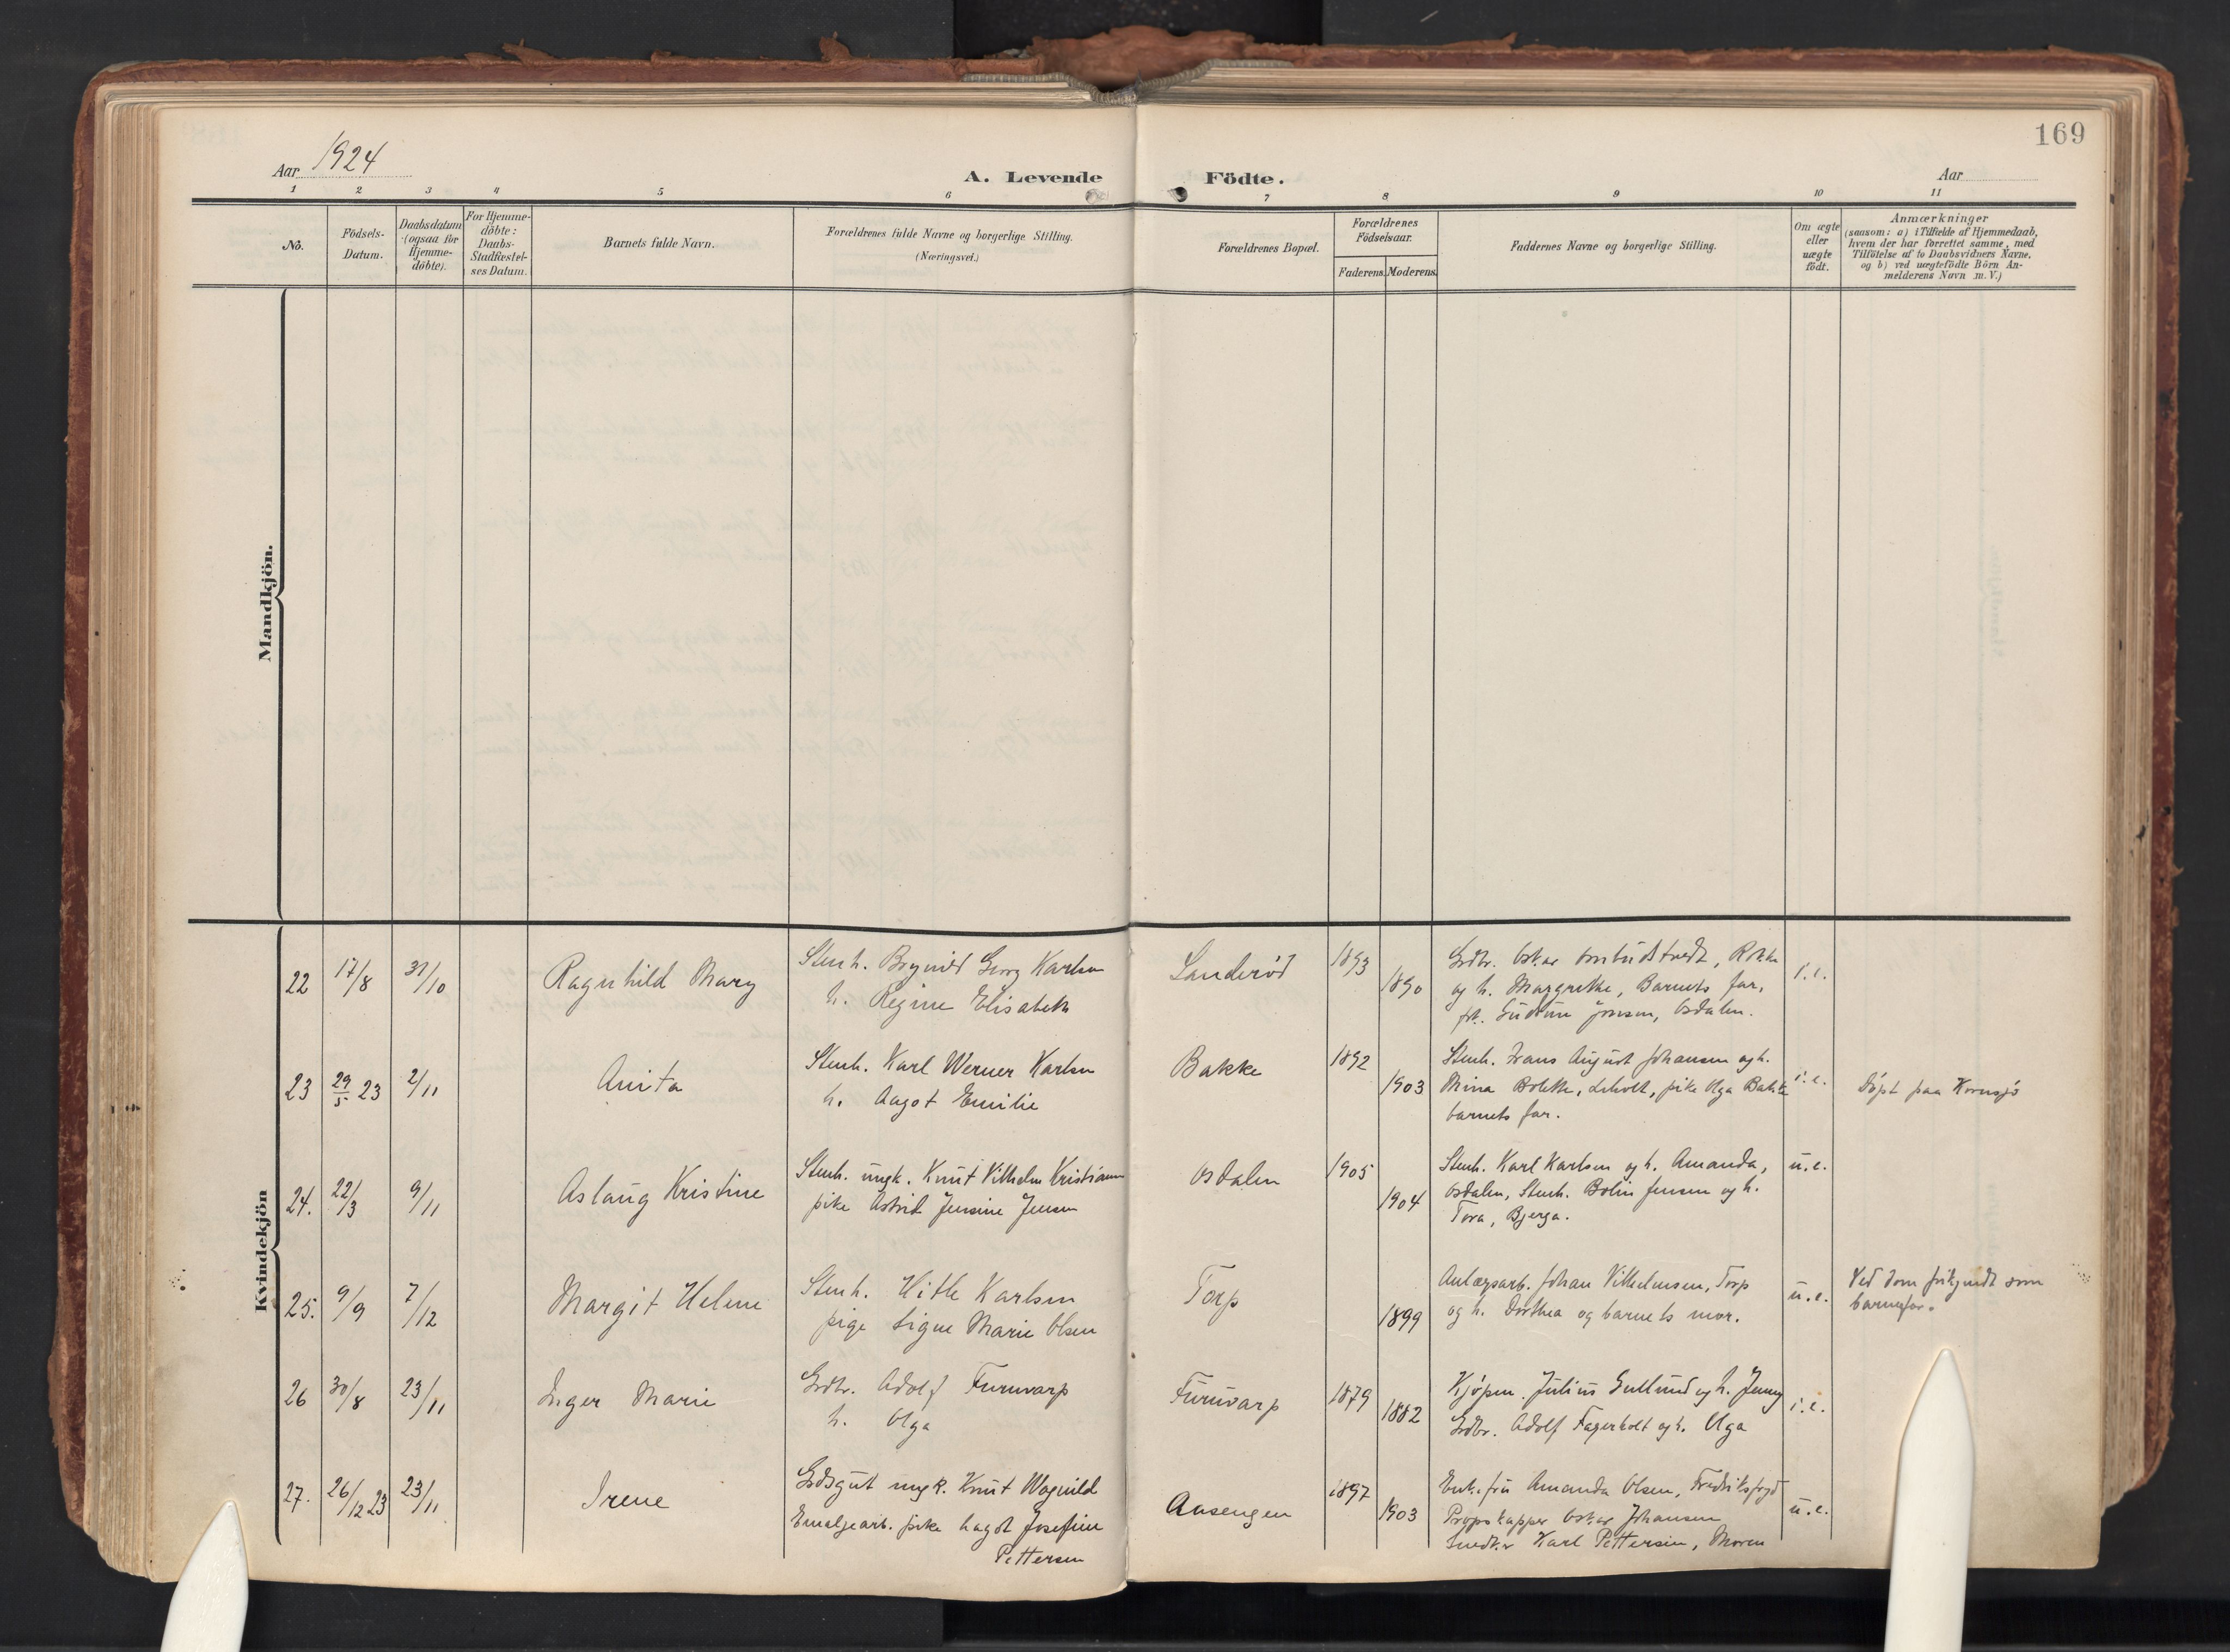 169
Aar 1924
A. Levende Födte.
Aar
1 2 3 4 5 6 7 8 9 10 11
No.
Födsels-
Datum.
Daabsdatum
(ogsaa for
Hjemme-
döbte).
For Hjemme-
döbte:
Daabs-
Stadfæstel-
ses Datum.
Barnets fulde Navn.
Forældrenes fulde Navne og borgerlige Stilling.
(Næringsvei.)
Forældrenes Bopæl.
Forældrenes
Födselsaar.
Faderens. Moderens.
Faddernes Navne og borgerlige Stilling.
Om ægte
eller
uægte
födt.
Anmærkninger
(saasom: a) i Tilfælde af Hjemmedaab,
hvem der har forrettet samme, med
Tilföielse af to Daabsvidners Navne,
og b) ved uægtefödte Börn An-
melderens Navn m. V.)
Mandkjön.
Kvindekjön
22 17/8 31/10 Ragnhild Mary
Stenh. Brynild Georg Karlsen
h. Regine Elisabeth
Landerød
1893
1890
Grdbr. Oskar Rokke
og h. Margrethe, Barnets far,
frk. Gudrun Jensen, Osdalen.
i.e.
23 29/5 23 2/11 Anita
Stenh. Karl Werner Karlsen
h. Aagot Emilie
Bakke
1892
1903
Stenh. Frans August Johansen og h.
Mina Bolette, Liholt, pike Olga Bakke
barnets far.
i.e.
Døpt paa Kornsjø
24. 22/3 9/11 Aslaug Kristine
Stenh. ungk. Knut Vilhelm Kristiansen
pike Astrid Jensine Jensen
Osdalen
1905
1904
Stenh. Karl Karlsen og h. Amanda,
Osdalen, Stenh. Bolin Jensen og h.
Tora, Bjerga.
u.e.
25. 9/9 7/12 Margit Helene
Stenh. Karlsen
pige Signe Marie Olsen
Torp
1899
Anlægsarb. Johan Vilhelmsen, Torp
og h. Dorthea og barnets mor.
u.e.
Ved dom frikjendt som
barnefar.
26 30/8 23/11 Inger Marie
Grdbr. Adolf Furuvarp
h. Olga
Furuvarp
1879
1882
Kjøpm. Julius Gullund og h. Jenny
Grdbr. Adolf Fagerholt og h. Olga
i.e.
27. 26/12 23 23/11 Irene
Grdsgut ungk. Knut Wognild
Emaljearb. pike Aagot Josefine
Pettersen
Aasengen
1897
1903
Enkefru Amanda Olsen, Fredrikshald
Propskapper Oskar Johansen
Snedker Karl Pettersen, Moren
u.e.